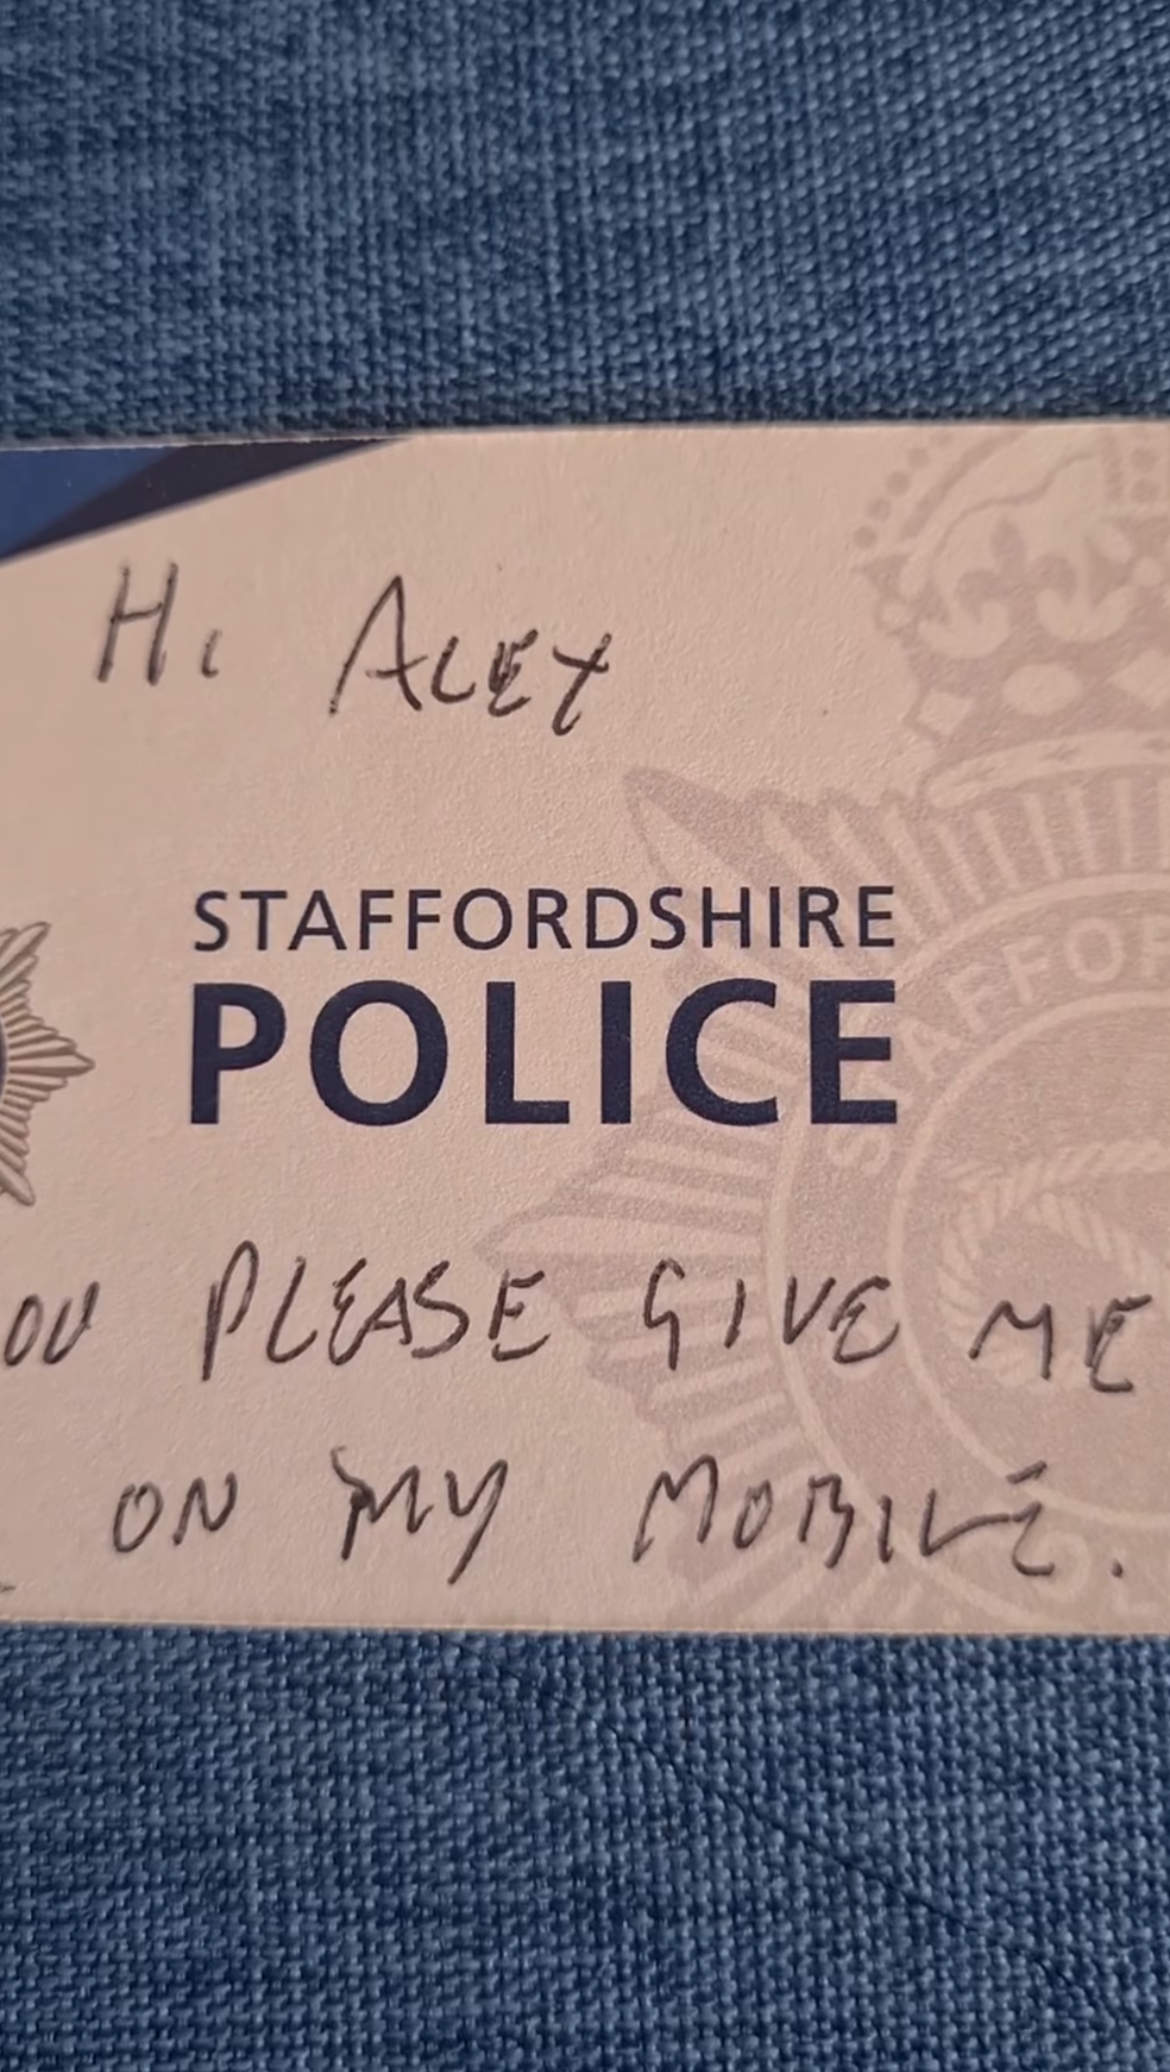 Hi ALEX
STAFFORDSHIRE
POLICE
STAFFOR
OU PLEASE GIVE ME
ON MY MOBILE.